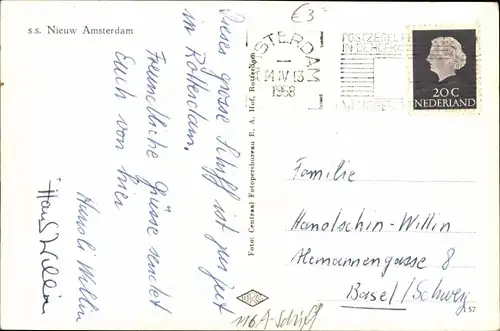 s.s. Nieuw Amsterdam
€3
STERDAM
14 IV 13
1958
POSTZEGEL
IN DE
20 C
NEDERLAND
Dieses grosse Schiff ist zur Zeit
in Rotterdam.
Freundliche Grüsse sendet
Euch von hier
Hansli Willin
Hans Willin
Foto: Centraal Fotopersbureau E. A. Hof, Rotterdam
Familie
Handschin-Willin
Alemannengasse 8
Basel/Schweiz
57
116 A-Schiff